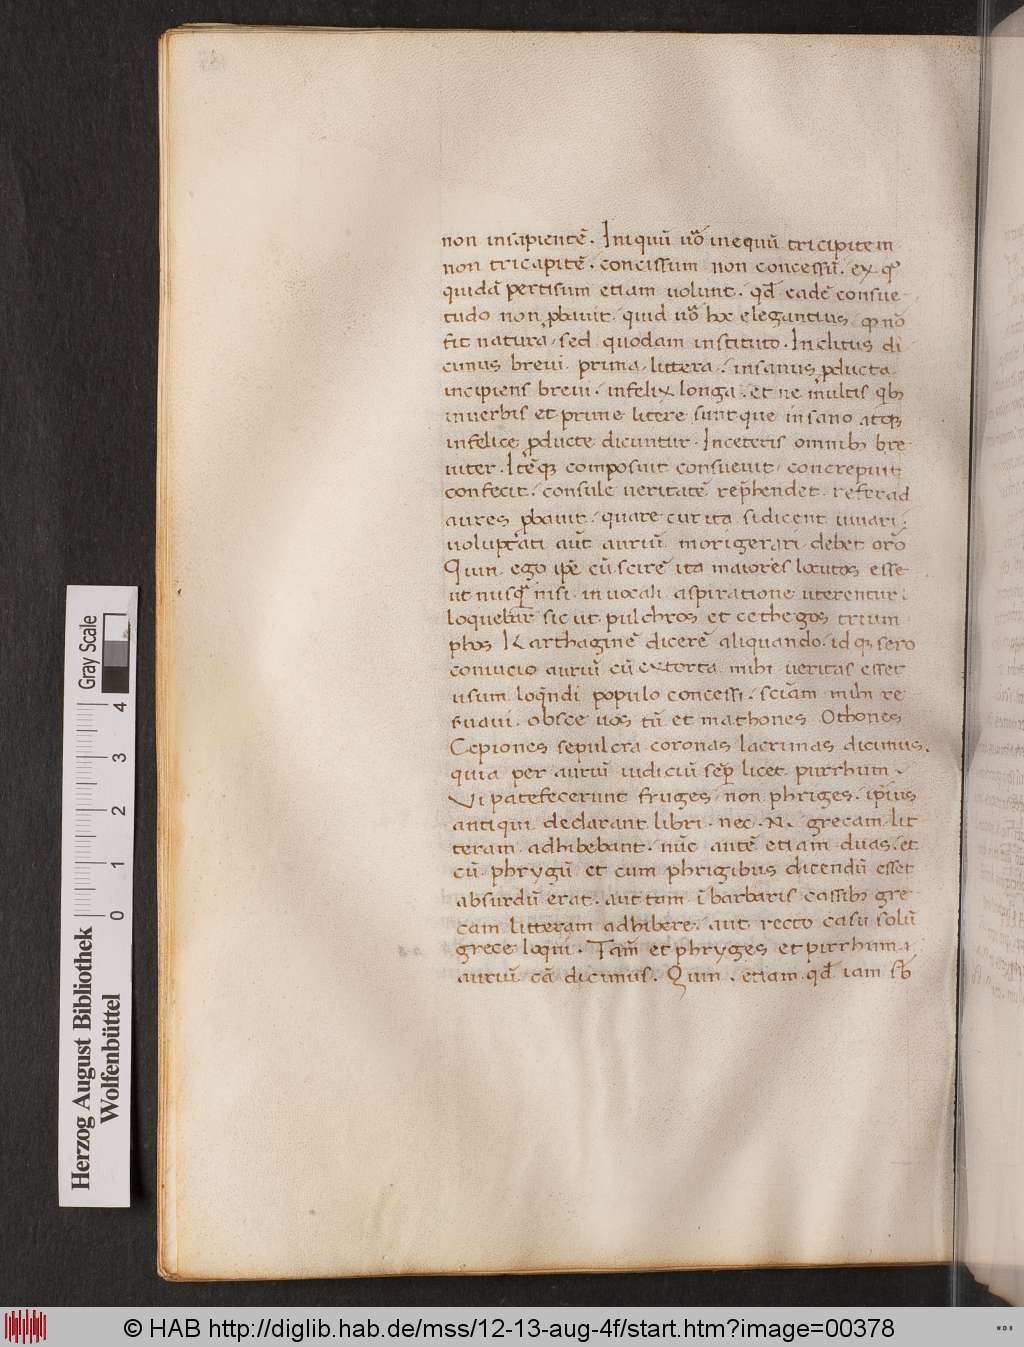 non insapientē. Iniquū uō inequū tricipitem
non tricapitē. concissum non concessū. ex qͦ
quidā pertisum etiam uolunt. qđ eadē consue
tudo non ꝓbauit. quid uō hoc elegantius qͦ nō
fit natura sed quodam instituto. Inclitus di
cimus breui prima littera. insanus ꝓducta
incipiens breui. infelix longa. et ne multis qͥbꝫ
inuerbis et prime litere sunt que insano atqꝫ
infelice ꝓducte dicuntur. Inceteris omnibꝫ bre
uiter. Itēqꝫ composuit consueuit concrepuit
confecit. consule ueritatē rep̄hendet. referad
aures ꝓbauit. quare cur ita sidicent iuuari.
uoluptati aut̄ auriū morigerari debet orō
Quin ego ip̄e cū scirē ita maiores locutos esse
ut nusqͣ nisi in uocali aspiratione uterentur.
loquebar sic ut pulchros et cethegos trium
phos Karthaginē dicerē aliquando. id qꝫ sero
conuicio auriū cū extorta mihi ueritas esset
usum loqndi populo concessi. sciam mihi re
seruaui. obsce uos tū et mathones Othones
Cepiones sepulcra coronas lacrimas dicimus.
quia per auriū iudiciū sēp licet pirrhum.
Vi patefecerunt fruges non phriges. ip̄ius
antiqui declarant libri. nec .N. grecam lit
teram adhibebant. nūc autē etiam duas. et
cū phrygū et cum phrigibus dicendū esset
absurdū erat. aut tam ī barbaris cassibꝫ gre
cam litteram adhibere. aut recto casu solū
grece loqui. Tam̄ et phryges et pirrhum.
auriū cā dicimus. Quin. etiam qđ iam sb̄
Gray Scale
4
3
2
1
0
Herzog August Bibliothek
Wolfenbüttel
© HAB http://diglib.hab.de/mss/12-13-aug-4f/start.htm?image=00378